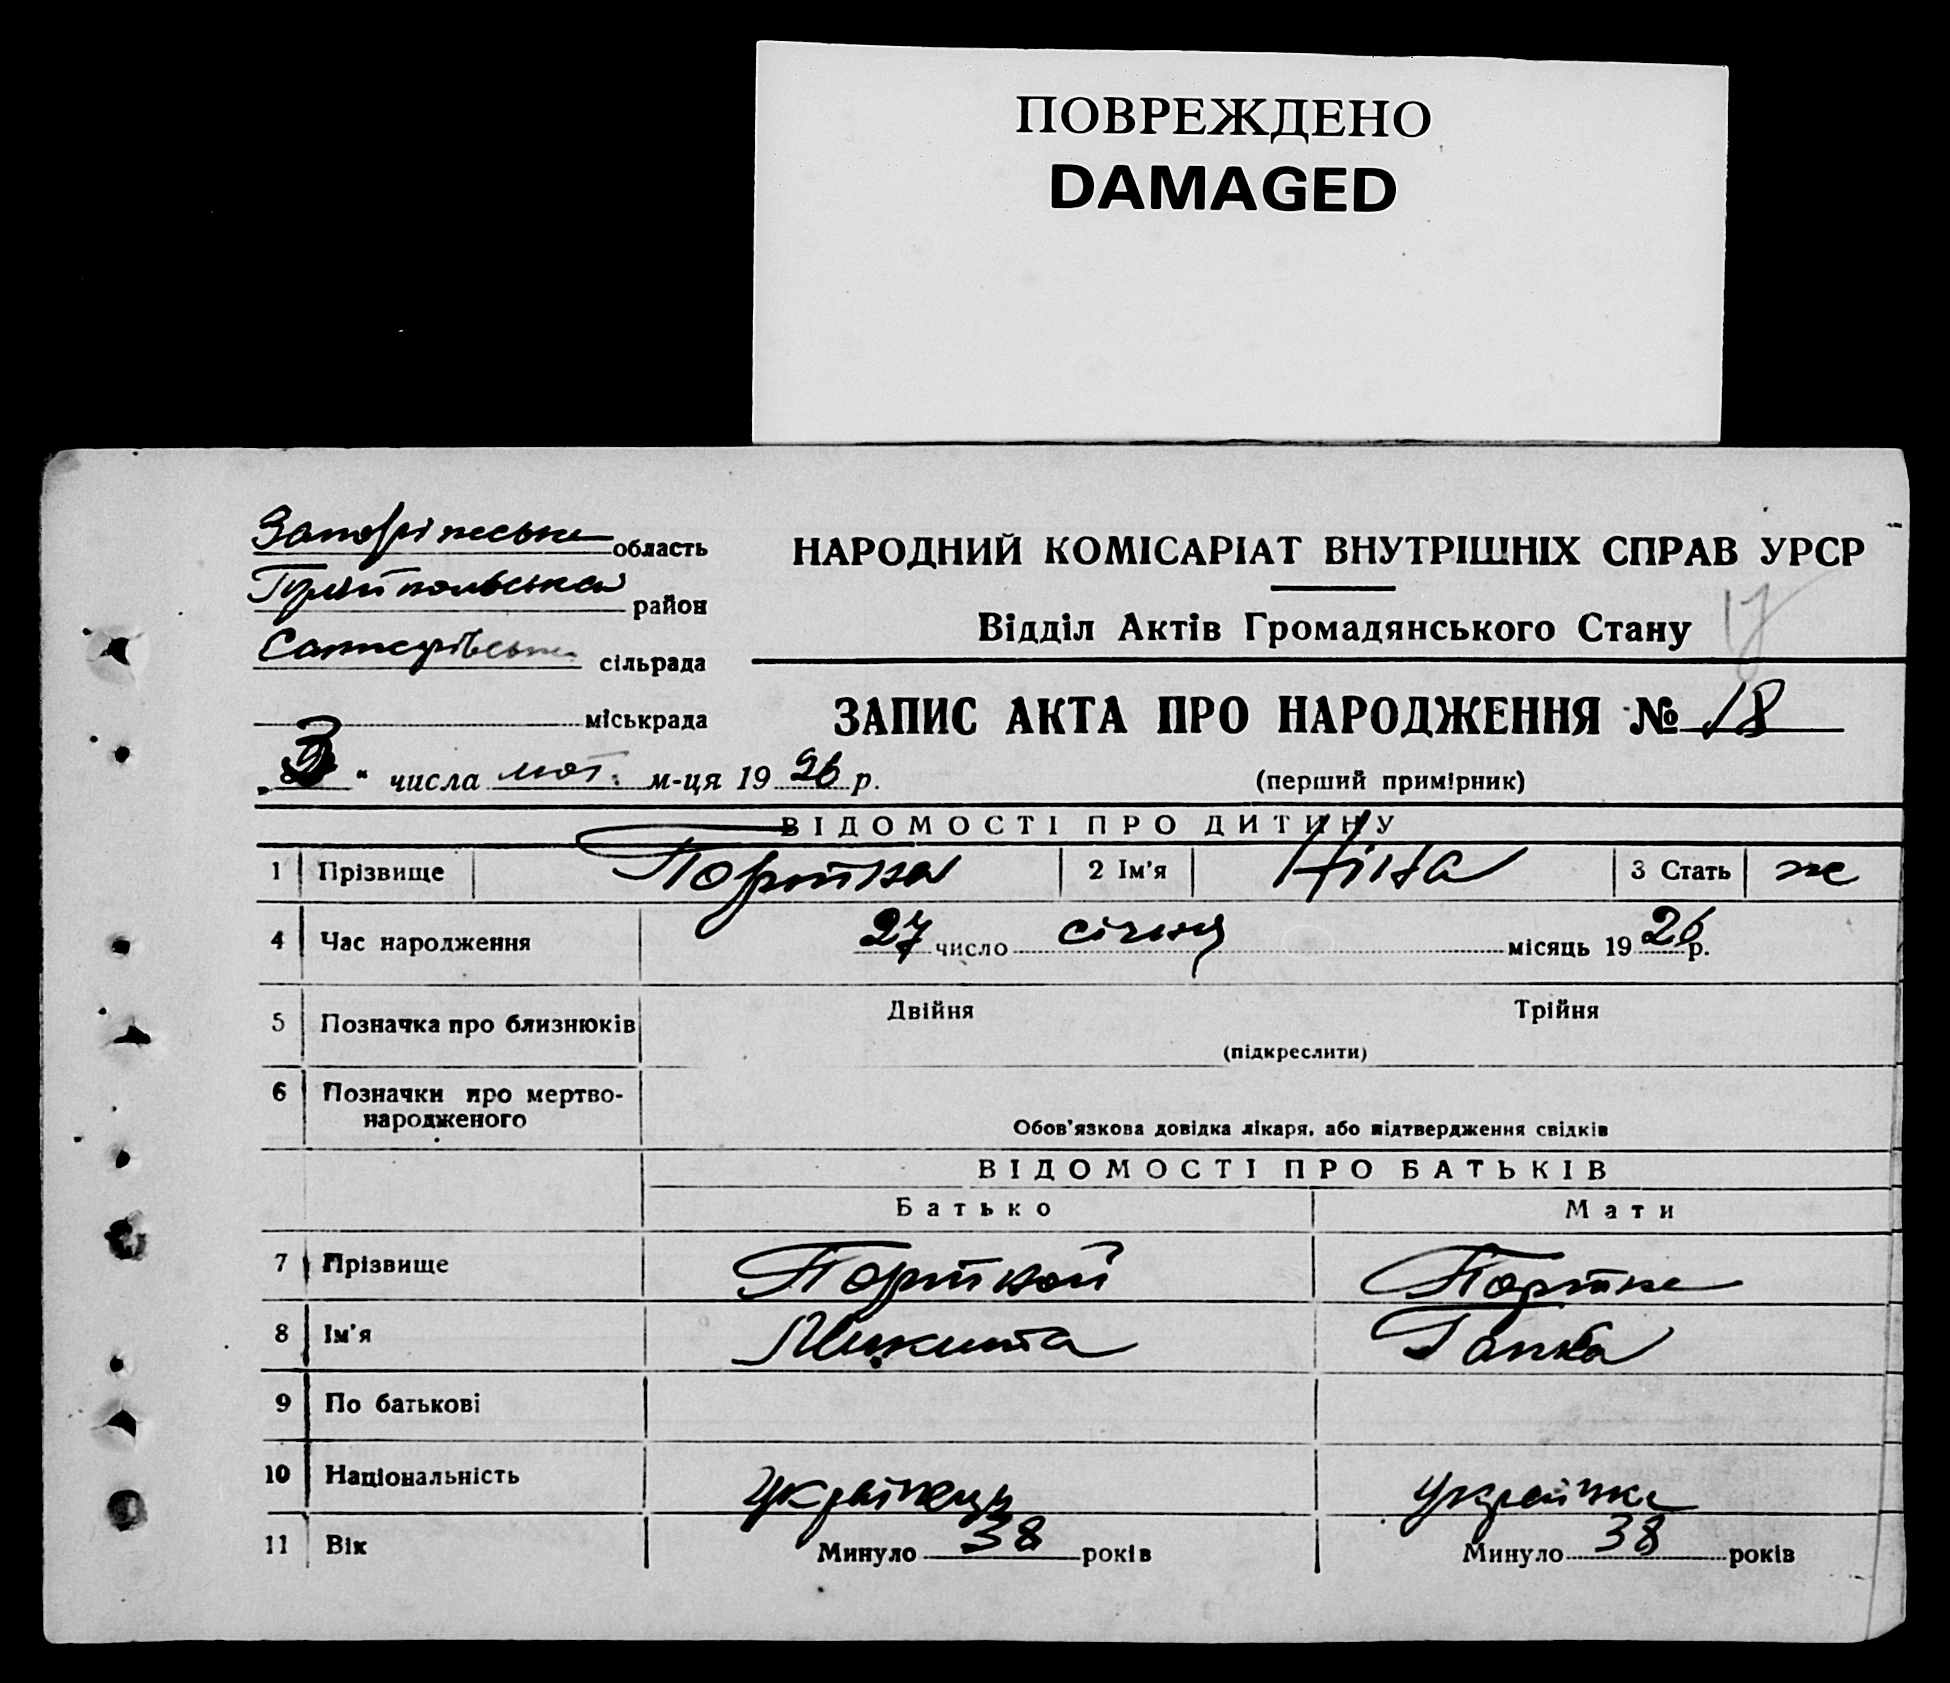 ПОВРЕЖДЕНО
DAMAGED
Запорізська область
Гуляйпольська район
сільрада
міськрада
НАРОДНИЙ КОМІСАРІАТ ВНУТРІШНІХ СПРАВ УРСР
Відділ Актів Громадянського Стану
ЗАПИС АКТА ПРО НАРОДЖЕННЯ № 18
(перший примірник)
„3“ числа лют. м-ця 1926 р.
ВІДОМОСТІ ПРО ДИТИНУ
1 Прізвище Портка 2 Ім'я Ніна 3 Стать ж
4 Час народження 27 число січня місяць 1926 р.
5 Позначка про близнюків Двійня Трійня
(підкреслити)
6 Позначки про мертво-
народженого
Обов'язкова довідка лікаря, або підтвердження свідків
ВІДОМОСТІ ПРО БАТЬКІВ
Батько Мати
7 Прізвище Порткой Портка
8 Ім'я Микита Гапка
9 По батькові
10 Національність українець українка
11 Вік Минуло 38 років Минуло 38 років